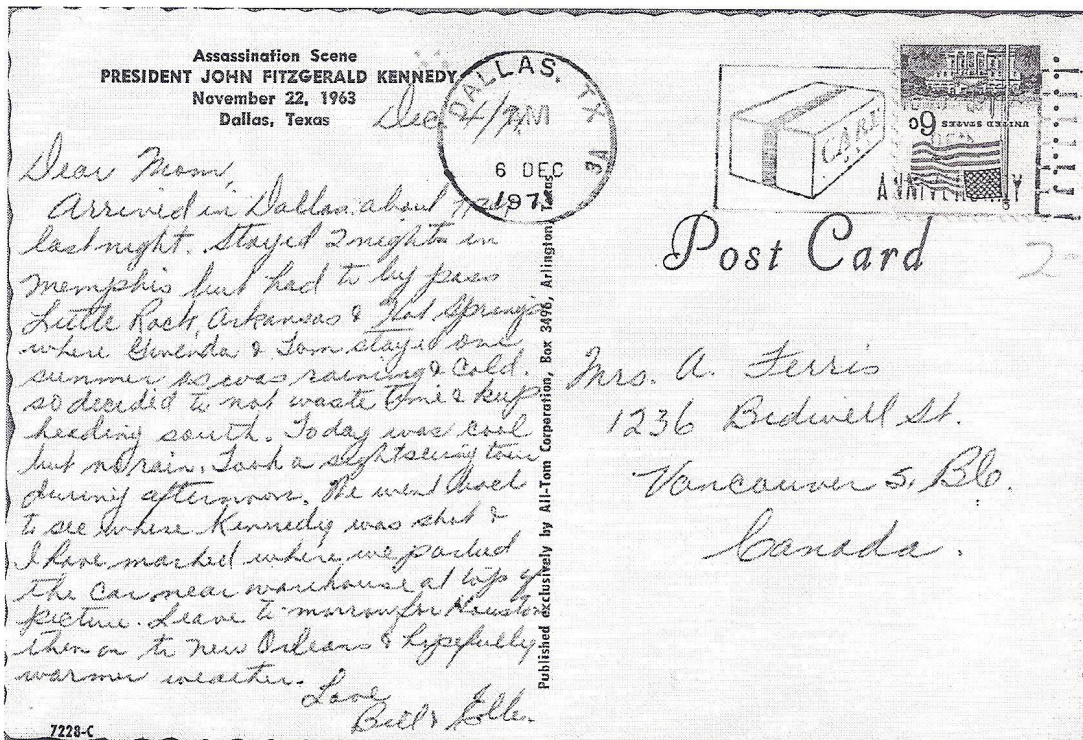 Assassination Scene
PRESIDENT JOHN FITZGERALD KENNEDY
November 22, 1963
Dallas, Texas
Dec 4/71
Dear Mom,
Arrived in Dallas about
last night. Stayed 2 nights in
Memphis but had to by pass
Little Rock, Arkansas & Hot Springs
where & Tom stayed one
summer as was raining & cold.
so decided to not waste time & keep
heading south. Today was cool
but no rain. Took a sightseeing tour
during afternoon. We went back
to see where Kennedy was shot &
I have marked where we parked
the car near warehouse at top of
picture. Leave to-morrow for Houston
then on to New Orleans & hopefully
warmer weather.
Love
Bill &
7228-C
Published exclusively by All-Tom Corporation, Box 3496, Arlington, Texas
DALLAS, TX
AM
6 DEC
1971
CARE
ANNIVERSARY
UNITED STATES 6c
Post Card
2-
Mrs. A. Ferris
1236 Bidwell St.
Vancouver 5, B.C.
Canada.